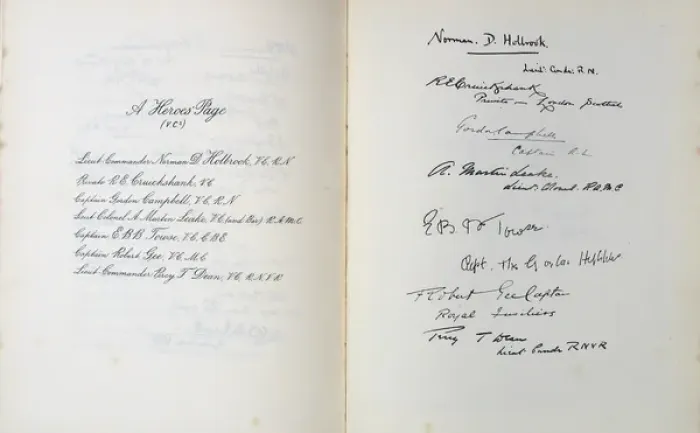 A Heroes' Page
(V.C's)
Lieut-Commander Norman D. Holbrook, V.C, R.N
Private R.E. Cruickshank, V.C
Captain Gordon Campbell, V.C, R.N
Lieut Colonel A Martin Leake, V.C (and Bar) R.A.M.C
Captain E.B.B. Towse, V.C, C.B.E
Captain Robert Gee, V.C, M.C
Lieut-Commander Percy T Dean, V.C, R.N.V.R
Norman. D. Holbrook.
Lieut: Comdr: R.N.
R E Cruickshank
Private in London Scottish
Gordon Campbell
Captain R.N.
A. Martin Leake.
Lieut: Colonel. R.A.M.C
E B B Towse.
Capt. The Gordon Highrs
Robert Gee Captain
Royal Fusiliers
Percy T Dean
Lieut Comdr RNVR